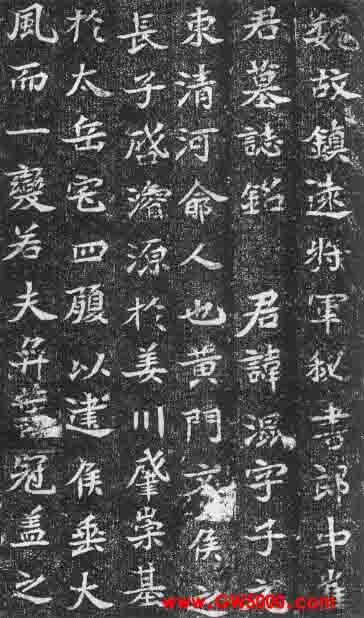 魏故鎮遠將軍秘書郎中崔
君墓誌銘 君諱混字子
東清河俞人也黃門文侯之
長子啓濬源於姜川肇崇基
於太岳宅四履以建侯垂大
風而一變若夫弈世冠盖之
www.GW5000.com